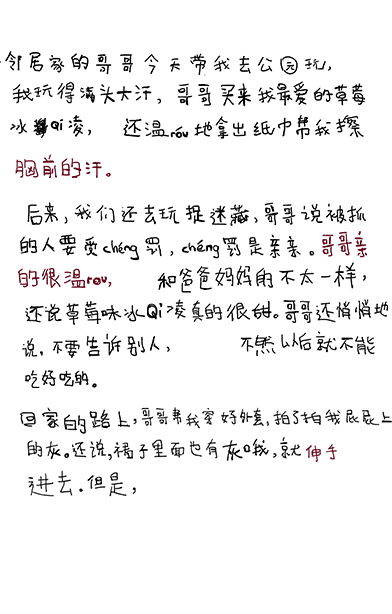 邻居家的哥哥今天带我去公园玩,
我玩得满头大汗,哥哥买来我最爱的草莓
冰Qi凌,还温róu地拿出纸巾帮我擦
胸前的汗。
后来,我们还去玩捉迷藏,哥哥说被抓
的人要受chéng罚,chéng罚是亲亲。哥哥亲
的很温rou,和爸爸妈妈的不太一样,
还说草莓味冰Qi凌真的很甜。哥哥还悄悄地
说,不要告诉别人,不然以后就不能
吃好吃的。
回家的路上,哥哥帮我穿好外套,拍了拍我屁屁上
的灰。还说,裙子里面也有灰哦,就伸手
进去.但是,